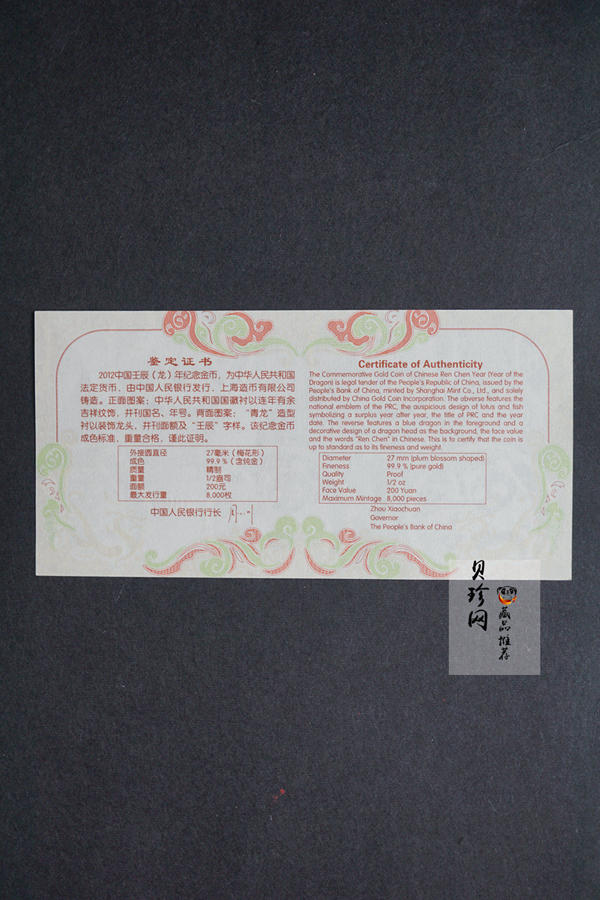 鉴定证书
2012中国壬辰（龙）年纪念金币，为中华人民共和国
法定货币，由中国人民银行发行，上海造币有限公司
铸造。正面图案：中华人民共和国国徽衬以连年有余
吉祥纹饰，并刊国名、年号。背面图案：“青龙”造型
衬以装饰龙头，并刊面额及“壬辰”字样。该纪念金币
成色标准，重量合格，谨此证明。
外接圆直径 27毫米（梅花形）
成色 99.9％（含纯金）
质量 精制
重量 1/2盎司
面额 200元
最大发行量 8,000枚
中国人民银行行长
Certificate of Authenticity
The Commemorative Gold Coin of Chinese Ren Chen Year (Year of the
Dragon) is legal tender of the People's Republic of China, issued by the
People's Bank of China, minted by Shanghai Mint Co., Ltd., and solely
distributed by China Gold Coin Incorporation. The obverse features the
national emblem of the PRC, the auspicious design of lotus and fish
symbolizing a surplus year after year, the title of PRC, and the year
date. The reverse features a blue dragon in the foreground and a
decorative design of a dragon head as the background, the face value
and the words "Ren Chen" in Chinese. This is to certify that the coin is
up to standard as to its fineness and weight.
Diameter 27 mm (plum blossom shaped)
Fineness 99.9 % (pure gold)
Quality Proof
Weight 1/2 oz
Face Value 200 Yuan
Maximum Mintage 8,000 pieces
Zhou Xiaochuan
Governor
The People's Bank of China
贝珍网
藏品推荐